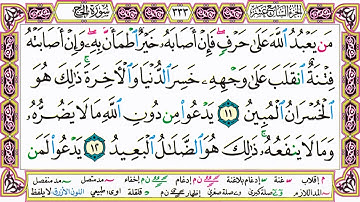 سورة الحج ٣٣٣ الجزء السابع عشر
مَن يَعْبُدُ ٱللَّهَ عَلَىٰ حَرْفٍۢ ۖ فَإِنْ أَصَابَهُۥ خَيْرٌ ٱطْمَأَنَّ بِهِۦ ۖ وَإِنْ أَصَابَتْهُ
فِتْنَةٌ ٱنقَلَبَ عَلَىٰ وَجْهِهِۦ خَسِرَ ٱلدُّنْيَا وَٱلْـَٔاخِرَةَ ۚ ذَٰلِكَ هُوَ
ٱلْخُسْرَانُ ٱلْمُبِينُ ١١ يَدْعُوا۟ مِن دُونِ ٱللَّهِ مَا لَا يَضُرُّهُۥ
وَمَا لَا يَنفَعُهُۥ ۚ ذَٰلِكَ هُوَ ٱلضَّلَٰلُ ٱلْبَعِيدُ ١٢ يَدْعُوا۟ لَمَن